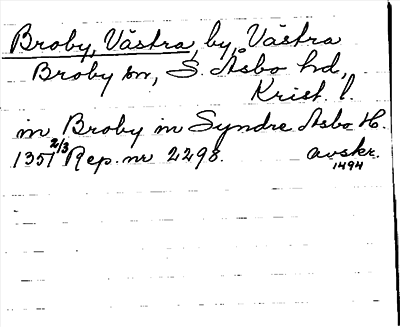 Broby, Västra, by, Västra
Broby sn, S. Åsbo hd,
Krist. l.
in Broby in Syndre Asbo H.
1357 2/3 Rep. nr 2298. avskr.
1494